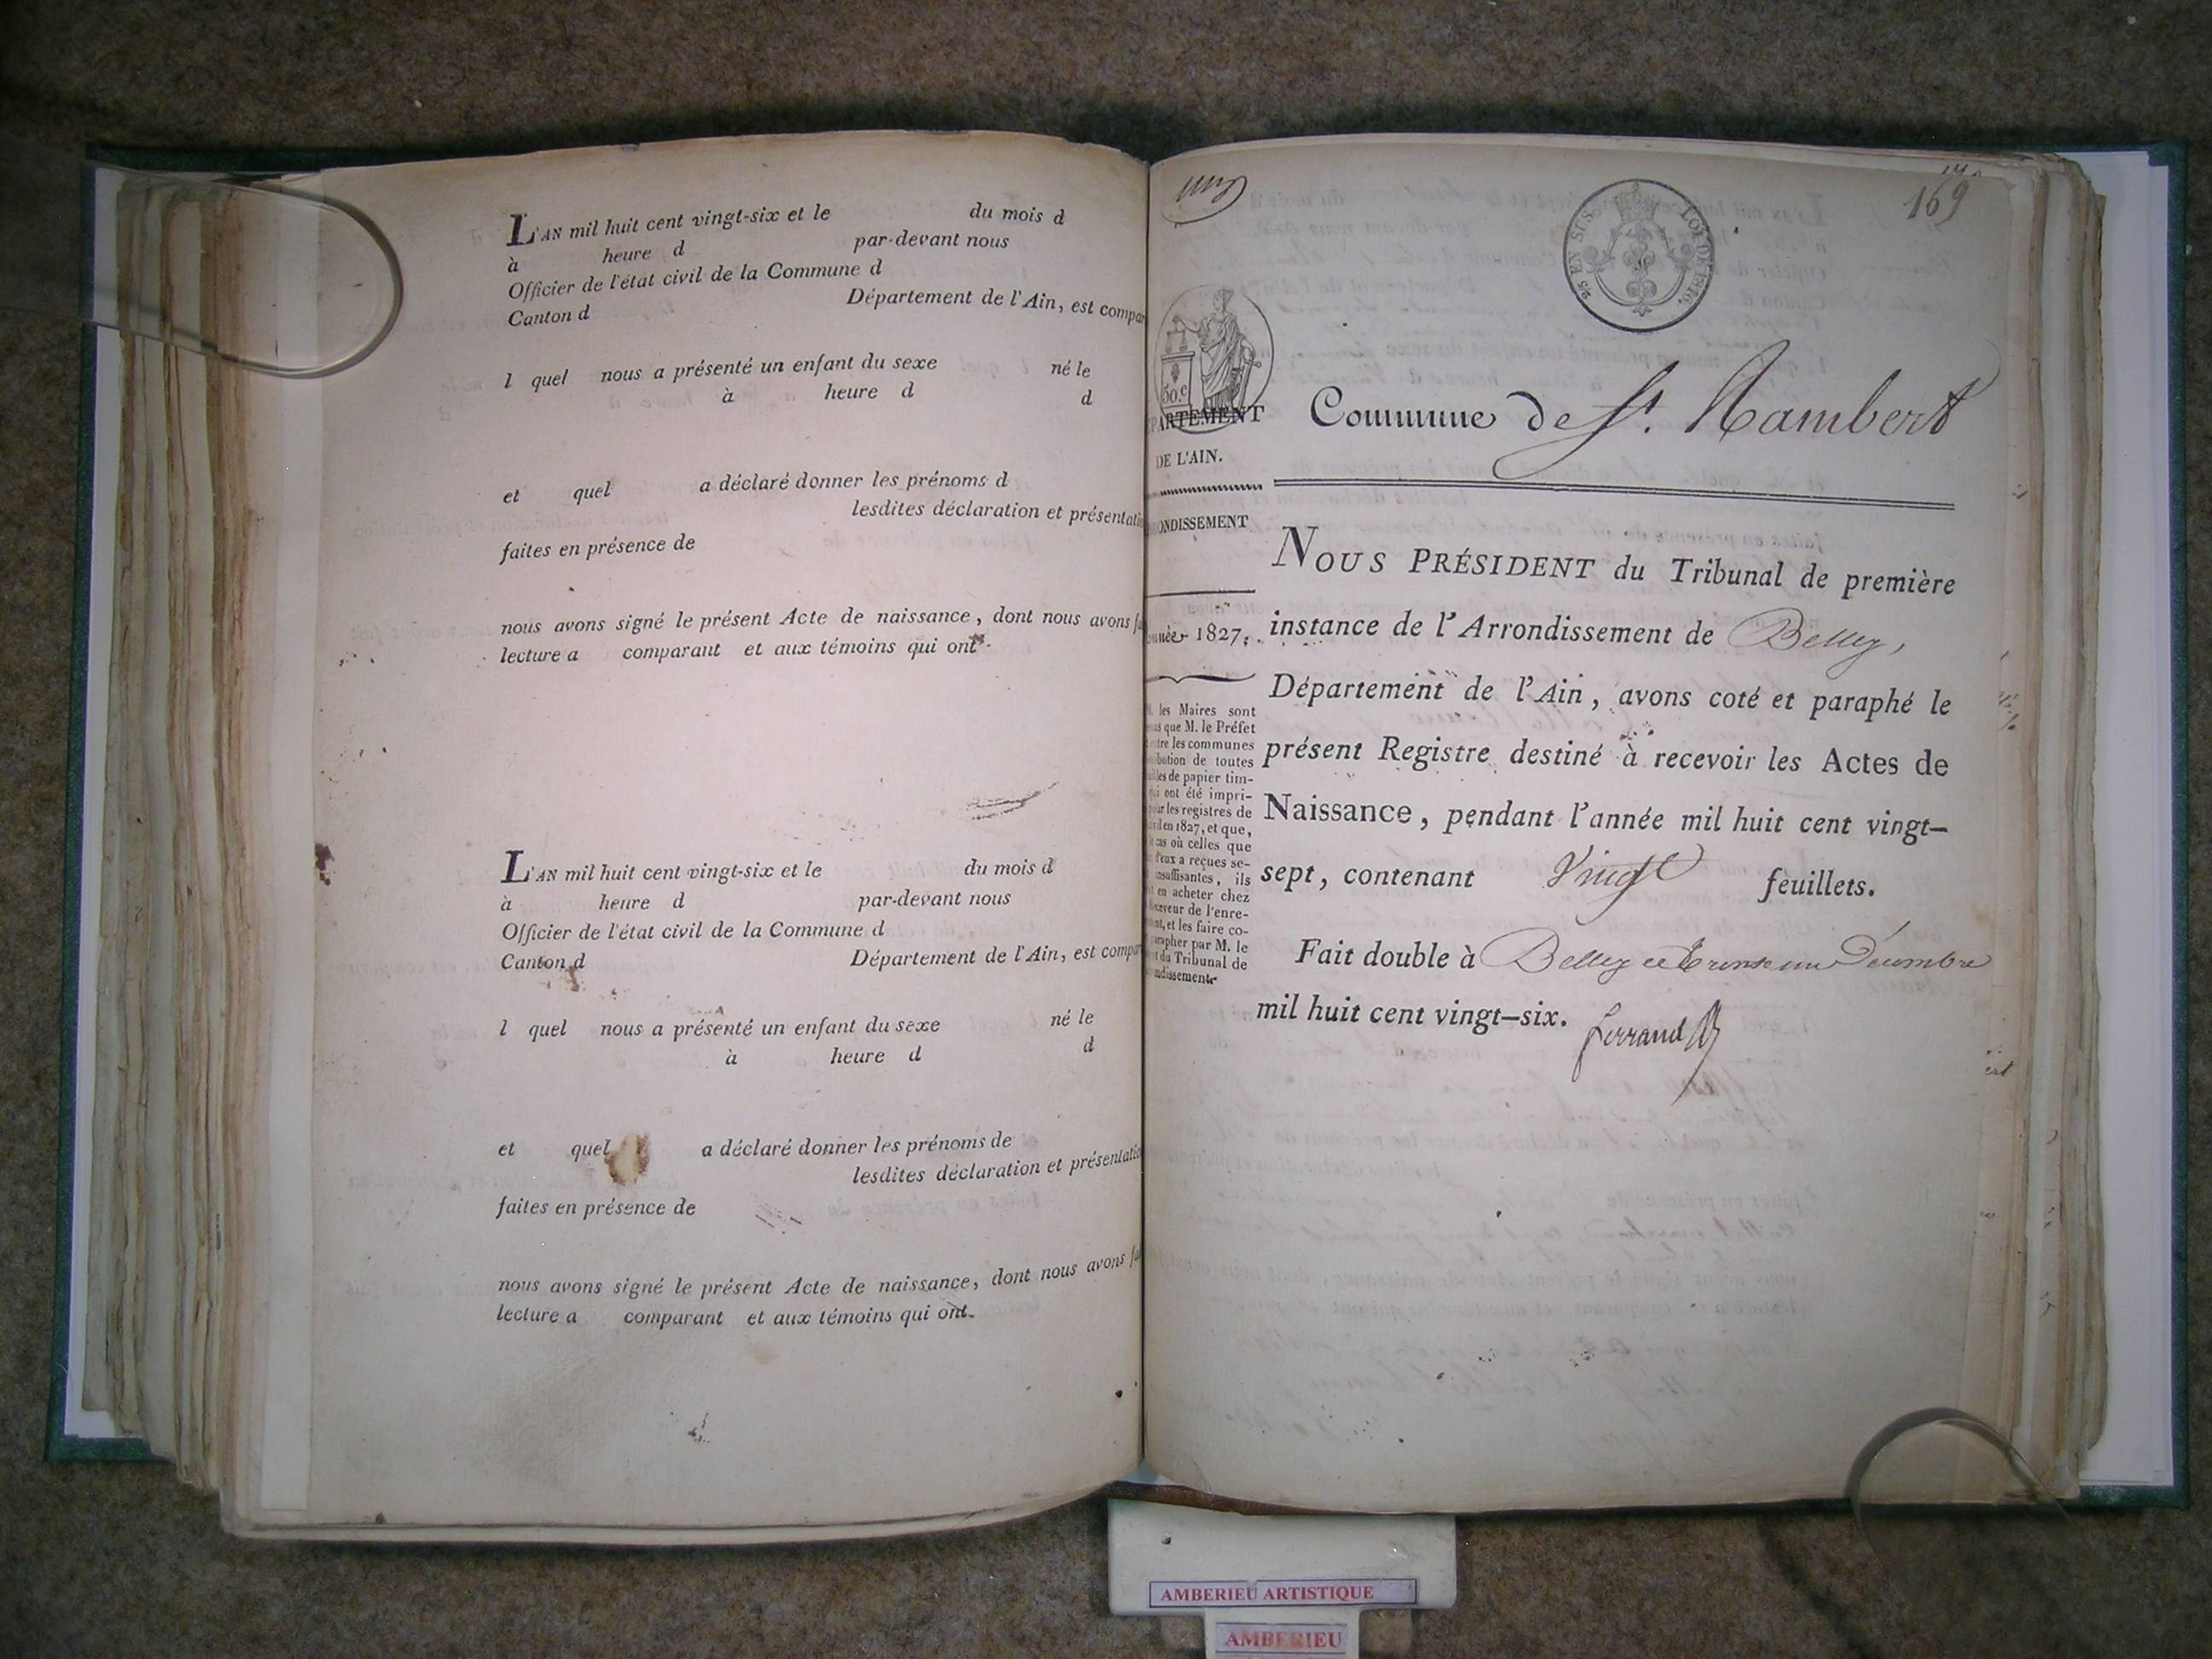 L'AN mil huit cent vingt-six et le du mois d
à heure d par-devant nous
Officier de l'état civil de la Commune d
Canton d Département de l'Ain, est compar
l quel nous a présenté un enfant du sexe né le
à heure d d
et quel a déclaré donner les prénoms d
lesdites déclaration et présentatio
faites en présence de
nous avons signé le présent Acte de naissance, dont nous avons fa
lecture a comparant et aux témoins qui ont
L'AN mil huit cent vingt-six et le du mois d
à heure d par-devant nous
Officier de l'état civil de la Commune d
Canton d Département de l'Ain, est compar
l quel nous a présenté un enfant du sexe né le
à heure d d
et quel a déclaré donner les prénoms de
lesdites déclaration et présentatio
faites en présence de
nous avons signé le présent Acte de naissance, dont nous avons fa
lecture a comparant et aux témoins qui ont
169
EN SUS. LOI DE 1816.
50.c
PARTEMENT
DE L'AIN.
ONDISSEMENT
nnée 1827.
les Maires sont
que M. le Préfet
tre les communes
bution de toutes
les de papier tim-
ui ont été impri-
ur les registres de
vil en 1827, et que,
cas où celles que
d'eux a reçues se-
insuffisantes, ils
en acheter chez
ceveur de l'enre-
nt, et les faire co-
arapher par M. le
t du Tribunal de
ndissement.
Commune de St. Rambert
NOUS PRÉSIDENT du Tribunal de première
instance de l'Arrondissement de Belley,
Département de l'Ain, avons coté et paraphé le
présent Registre destiné à recevoir les Actes de
Naissance, pendant l'année mil huit cent vingt-
sept, contenant Vingt feuillets.
Fait double à Belley ce trente un Décembre
mil huit cent vingt-six. Ferrand
AMBERIEU ARTISTIQUE
AMBERIEU